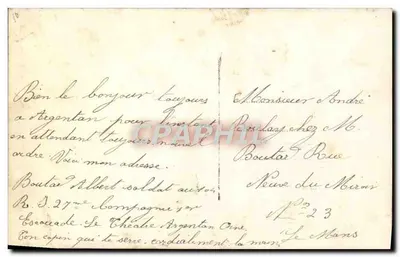 Bien le bonjour toujours
a Argentan pour l'instant
en attendant toujours nouvel
ordre Voici mon adresse.
Boutard Albert soldat au
R. I. 27me Compagnie 1er
Escouade. Le Théatre Argentan Orne
Ton copain qui te serre cordialement la main
Monsieur André
chez M.
Boutard Rue
Neuve du Miroir
No 23
Le Mans
CPAPHIL